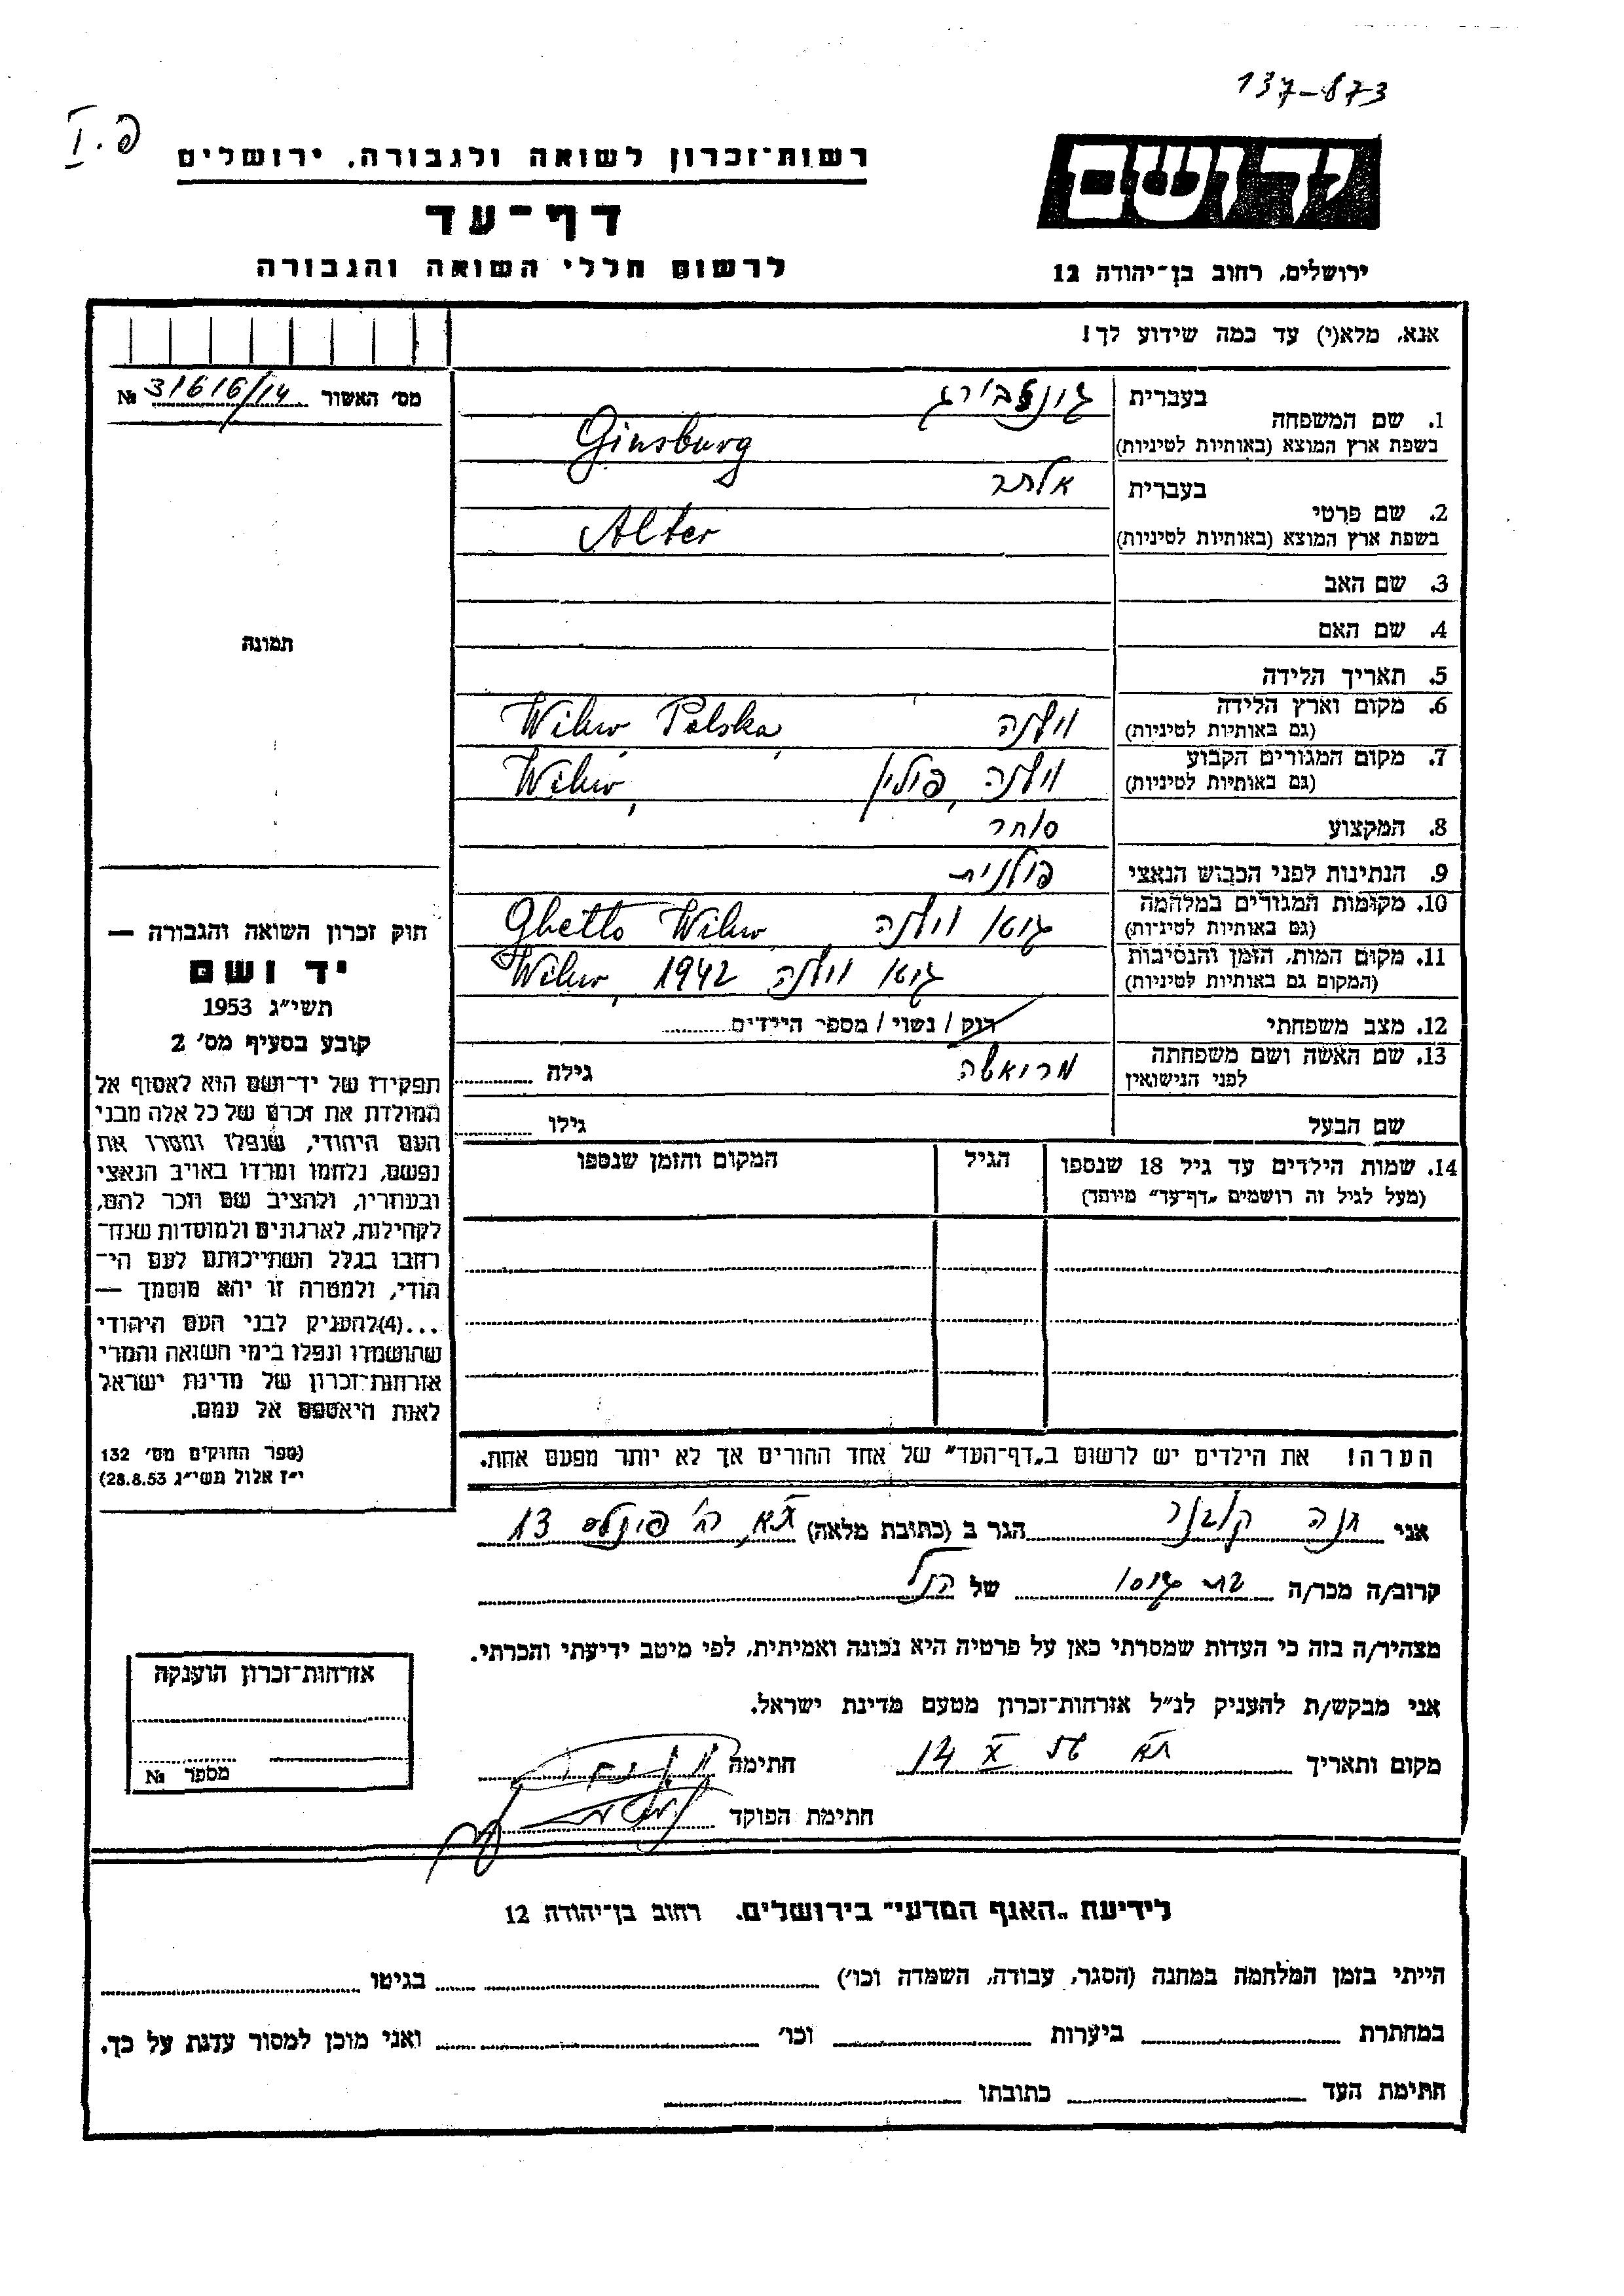 137-873
פ. I
יד ושם
רשות־זכרון לשואה ולגבורה, ירושלים
דף־עד
לרשום חללי השואה והגבורה
ירושלים, רחוב בן־יהודה 12
אנא, מלא(י) עד כמה שידוע לך!
מס׳ האשור 31616/14 №
1. שם המשפחה
בעברית
גינצבורג
בשפת ארץ המוצא (באותיות לטיניות)
Ginsburg
2. שם פרטי
בעברית
אלתר
בשפת ארץ המוצא (באותיות לטיניות)
Alter
3. שם האב
4. שם האם
5. תאריך הלידה
6. מקום וארץ הלידה
(גם באותיות לטיניות)
וילנה Wilno Polska
7. מקום המגורים הקבוע
(גם באותיות לטיניות)
וילנה, פולין Wilno,
8. המקצוע
סוחר
9. הנתינות לפני הכבוש הנאצי
פולנית
10. מקומות המגורים במלחמה
(גם באותיות לטיניות)
גטו וילנה Ghetto Wilno
11. מקום המות, הזמן והנסיבות
(המקום גם באותיות לטיניות)
גטו וילנה 1942 Wilno,
12. מצב משפחתי
רוק / נשוי / מספר הילדים
13. שם האשה ושם משפחתה
לפני הנישואין
גילה
שם הבעל
גילו
14. שמות הילדים עד גיל 18 שנספו
(מעל לגיל זה רושמים „דף־עד" מיוחד)
הגיל
המקום והזמן שנספו
תמונה
חוק זכרון השואה והגבורה —
יד ושם
תשי״ג 1953
קובע בסעיף מס׳ 2
תפקידו של יד־ושם הוא לאסוף אל
המולדת את זכרם של כל אלה מבני
העם היהודי, שנפלו ומסרו את
נפשם, נלחמו ומרדו באויב הנאצי
ובעוזריו, ולהציב שם וזכר להם,
לקהילות, לארגונים ולמוסדות שנח־
רבו בגלל השתייכותם לעם הי־
הודי, ולמטרה זו יהא מוסמך —
...(4)להעניק לבני העם היהודי
שהושמדו ונפלו בימי השואה והמרי
אזרחות־זכרון של מדינת ישראל
לאות היאספם אל עמם.
(ספר החוקים מס׳ 132
י״ז אלול תשי״ג 28.8.53)
הערה! את הילדים יש לרשום ב„דף־העד" של אחד ההורים אך לא יותר מפעם אחת.
אני חנה הגר ב (כתובת מלאה) ת״א, רח׳ פינלס 13
קרוב/ה מכר/ה בת גיסו של הנ״ל
מצהיר/ה בזה כי העדות שמסרתי כאן על פרטיה היא נכונה ואמיתית, לפי מיטב ידיעתי והכרתי.
אני מבקש/ת להעניק לנ״ל אזרחות־זכרון מטעם מדינת ישראל.
מקום ותאריך ת״א X 14 חתימה
חתימת הפוקד
אזרחות־זכרון הוענקה
מספר №
לידיעת „האגף המדעי" בירושלים, רחוב בן־יהודה 12
הייתי בזמן המלחמה במחנה (הסגר, עבודה, השמדה וכו׳) בגיטו
במחתרת ביערות וכו׳ ואני מוכן למסור עדות על כך.
חתימת העד כתובתו